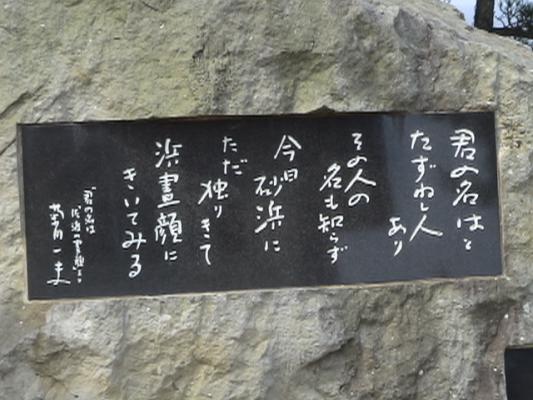 君の名はと
たずねし人
あり
その人の
名も知らず
今日砂浜に
ただ独りきて
浜昼顔に
きいてみる
「君の名は
佐渡の巻」より
菊田一夫